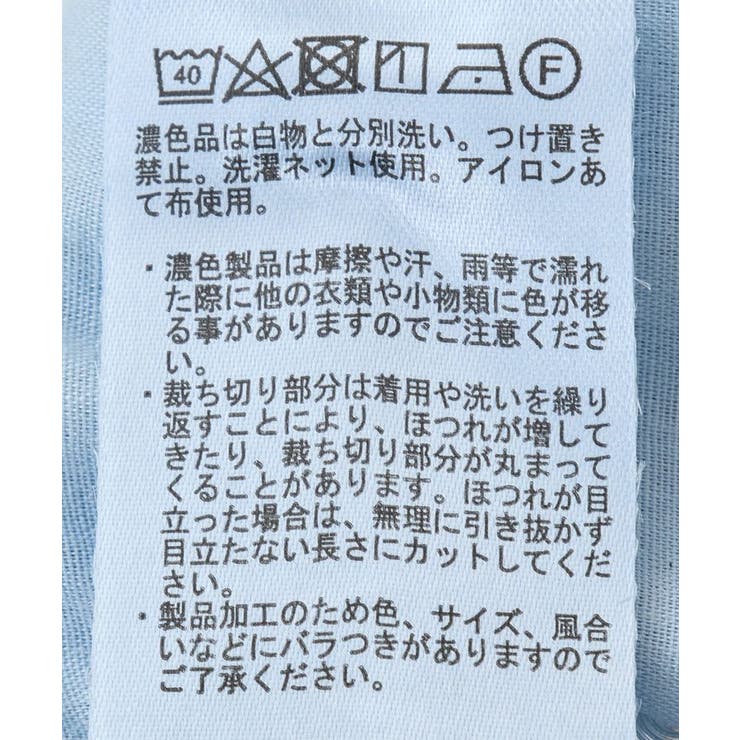 40 F
濃色品は白物と分別洗い。つけ置き
禁止。洗濯ネット使用。アイロンあ
て布使用。
・濃色製品は摩擦や汗、雨等で濡れ
た際に他の衣類や小物類に色が移
る事がありますのでご注意くださ
い。
・裁ち切り部分は着用や洗いを繰り
返すことにより、ほつれが増して
きたり、裁ち切り部分が丸まって
くることがあります。ほつれが目
立った場合は、無理に引き抜かず
目立たない長さにカットしてくだ
さい。
・製品加工のため色、サイズ、風合
いなどにバラつきがありますので
ご了承ください。